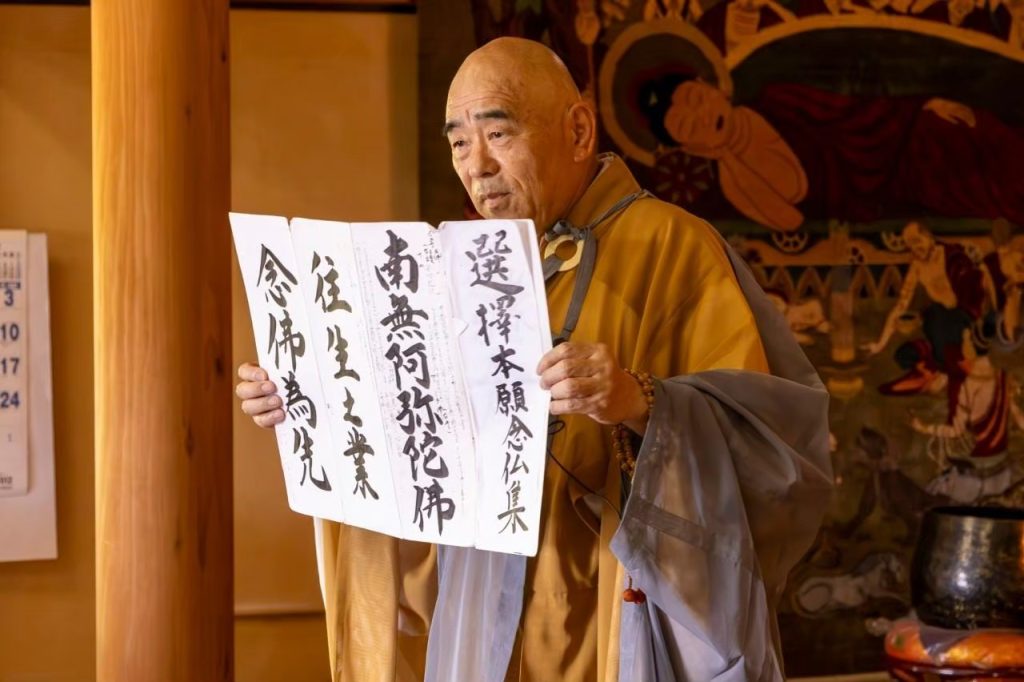 選擇本願念仏集
南無阿弥陀佛
往生之業
念佛為先
3
10
17
24
1